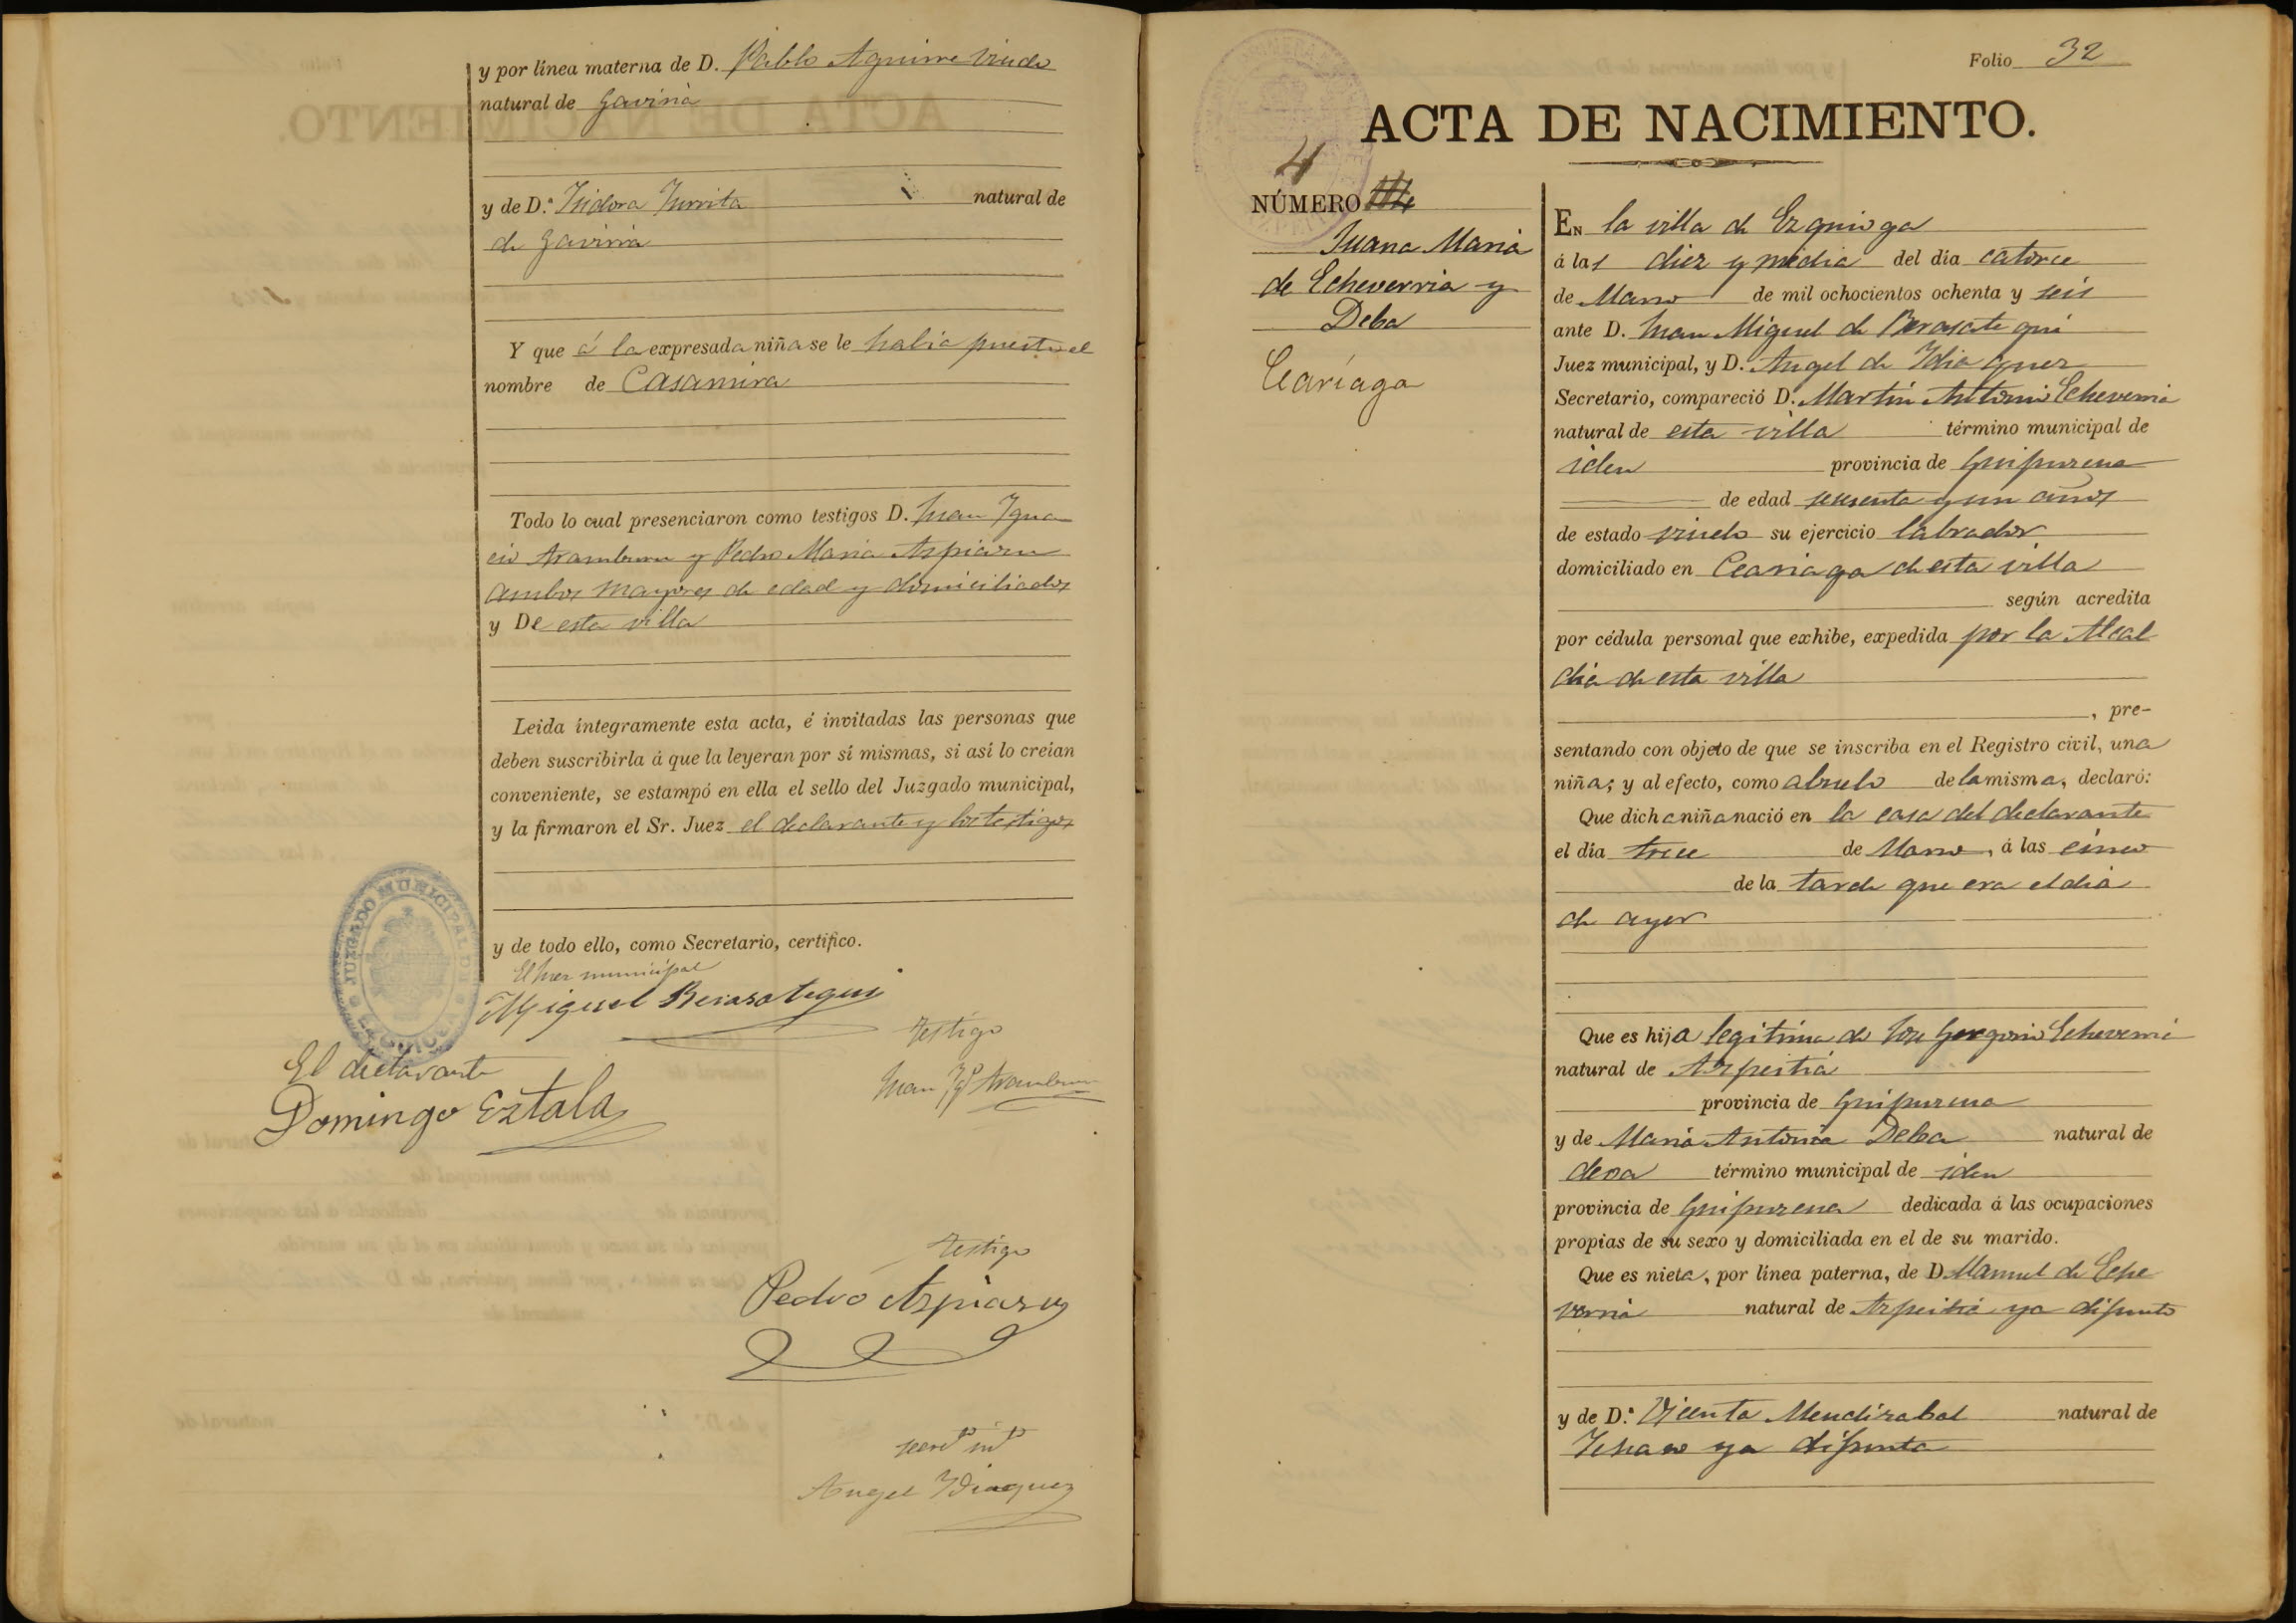 y por línea materna de D. Pablo Aguirre viudo
natural de Gaviria
y de D.ª Isidora Iturrita natural de
de Gaviria
Y que á la expresada niña se le habia puesto el
nombre de Casamira
Todo lo cual presenciaron como testigos D. Juan Igna
cio Aramburu y Pedro Maria Aspiazu
ambos mayores de edad y domiciliados
y De esta villa
Leida íntegramente esta acta, é invitadas las personas que
deben suscribirla á que la leyeran por sí mismas, si así lo creían
conveniente, se estampó en ella el sello del Juzgado municipal,
y la firmaron el Sr. Juez el declarante y los testigos
y de todo ello, como Secretario, certifico.
El Juez municipal
Miguel Berasategui
JUZGADO MUNICIPAL DE
EZQUIOGA
testigo
Juan Ygº Aramburu
El declarante
Domingo Eztala
testigo
Pedro Aspiazu
secretº intº
Angel Ydiaquez
Folio 32
ACTA DE NACIMIENTO.
4
NÚMERO
Juana Maria
de Echeverria y
Deba
Ceariaga
EN la villa de Ezquioga
á las diez y media del dia catorce
de Marzo de mil ochocientos ochenta y seis
ante D. Juan Miguel de Berasategui
Juez municipal, y D. Angel de Idiaquez
Secretario, compareció D. Martin Antonio Echeverria
natural de esta villa término municipal de
iden provincia de Guipuzcua
de edad sesenta y un años
de estado viudo su ejercicio labrador
domiciliado en Ceariaga de esta villa
según acredita
por cédula personal que exhibe, expedida por la Alcal
dia de esta villa
, pre-
sentando con objeto de que se inscriba en el Registro civil, una
niña; y al efecto, como abuelo de la misma, declaró:
Que dicha niña nació en la casa del declarante
el día trece de Marzo, á las cinco
de la tarde que era el dia
de ayer
Que es hija legitima de Jose Gregorio Echeverria
natural de Azpeitia
provincia de Guipuzcua
y de Maria Antonia Deba natural de
deva término municipal de iden
provincia de Guipuzcua dedicada á las ocupaciones
propias de su sexo y domiciliada en el de su marido.
Que es nieta, por línea paterna, de D. Manuel de Eche
verria natural de Azpeitia ya difunto
y de D.ª Vicenta Mendizabal natural de
Ichaso ya difunta